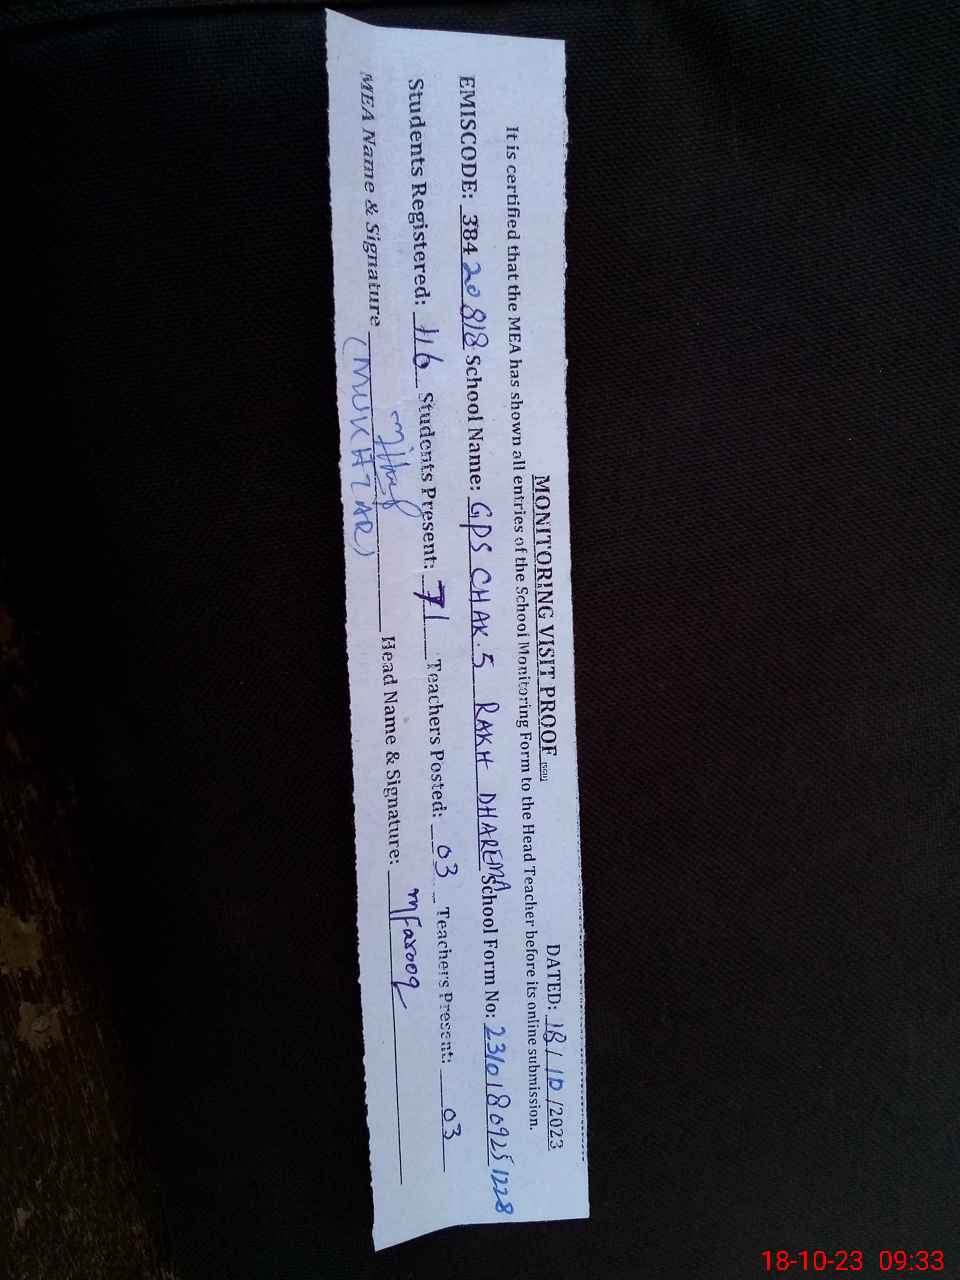 MONITORING VISIT PROOF DATED: 18/10/2023
It is certified that the MEA has shown all entries of the School Monitoring Form to the Head Teacher before its online submission.
EMISCODE: 38420818 School Name: GPS CHAK.5 RAKH DHAREMA School Form No: 23101809251228
Students Registered: 116 Students Present: 71 Teachers Posted: 03 Teachers Present: 03
MEA Name & Signature Head Name & Signature: M Farooq
(MUKHTAR)
18-10-23 09:33